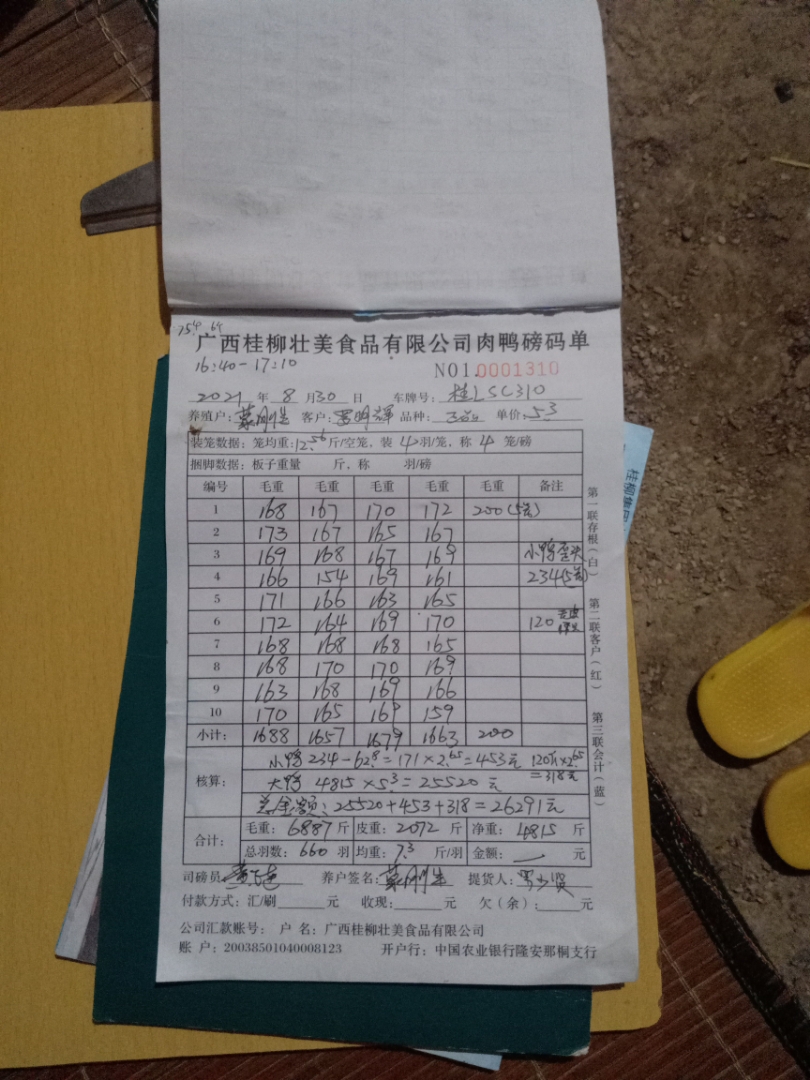 754 64
广西桂柳壮美食品有限公司肉鸭磅码单
16:40-17:10
NO1.0001310
2021 年 8 月 30 日 车牌号: 桂LSC310
养殖户: 客户: 明辉 品种: 单价: 5.3
装笼数据: 笼均重: 12.56 斤/空笼, 装 4 羽/笼, 称 4 笼/磅
捆脚数据: 板子重量 斤, 称 羽/磅
编号 毛重 毛重 毛重 毛重 毛重 备注
1 168 167 170 172 200 (5笼)
2 173 167 165 167
3 169 168 167 169 小鸭歪头
4 166 154 169 161 234(5笼)
5 171 166 163 165
6 172 164 169 170 120
7 168 168 168 165
8 168 170 170 169
9 163 168 169 166
10 170 165 169 159
小计: 1688 1657 1679 1663 200
核算: 小鸭 234-62.8=171×2.65=453元 120斤×2.65=318元
大鸭 4815×5.3=25520 元
总金额: 25520+453+318=26291元
合计: 毛重: 6887 斤 皮重: 2072 斤 净重: 4815 斤
总羽数: 660 羽 均重: 7.3 斤/羽 金额: 元
司磅员: 养户签名: 提货人:
付款方式: 汇/刷 元 收现: 元 欠(余): 元
公司汇款账号: 户 名: 广西桂柳壮美食品有限公司
账 户: 20038501040008123 开户行: 中国农业银行隆安那桐支行
第一联存根(白) 第二联客户(红) 第三联会计(蓝)